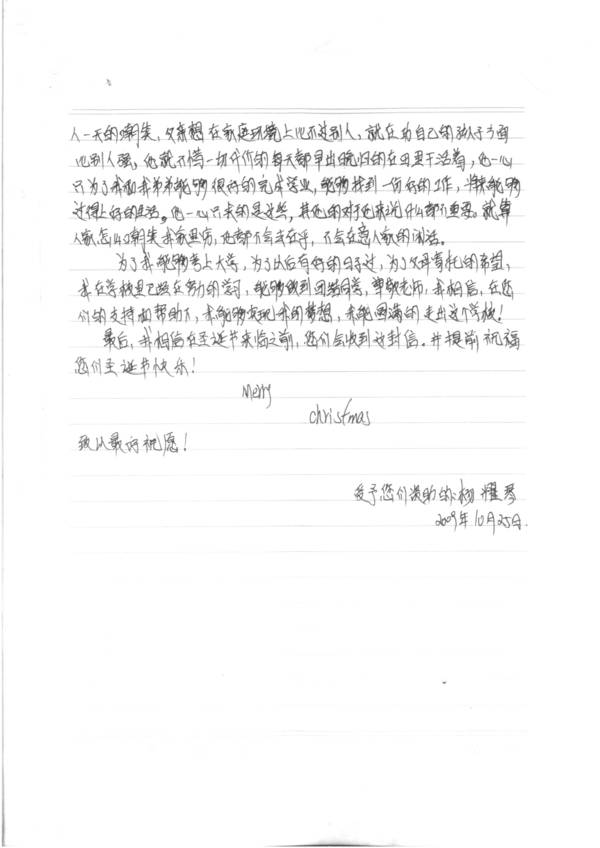 人一天的嘲笑，父亲想在家庭环境上比不过别人，就在为自己的孩子方面
比别人强，他就不惜一切代价的每天都早出晚归的在田里干活着，他一心
只为了我和我弟弟能够很好的完成学业，能够找到一份好的工作，将来能够
过得上好的生活。他一心只求的是这些，其他的对于他来说什么都不重要。就算
人家怎么嘲笑我家里穷，他都不会去在乎，不会在意人家的闲话。
为了我能够考上大学，为了以后有好的日子过，为了父母寄托的希望，
我在学校里已经在努力的学习，能够做到团结同学，尊敬老师，我相信，在您
们的支持和帮助下，我能够实现我的梦想，我能圆满的走出这个学校！
最后，我相信在圣诞节来临之前，您们会收到这封信。并提前祝福
您们圣诞节快乐！
Merry
christmas
致以最好祝愿！
受予您们资助的：杨耀琴
2009年10月25日.